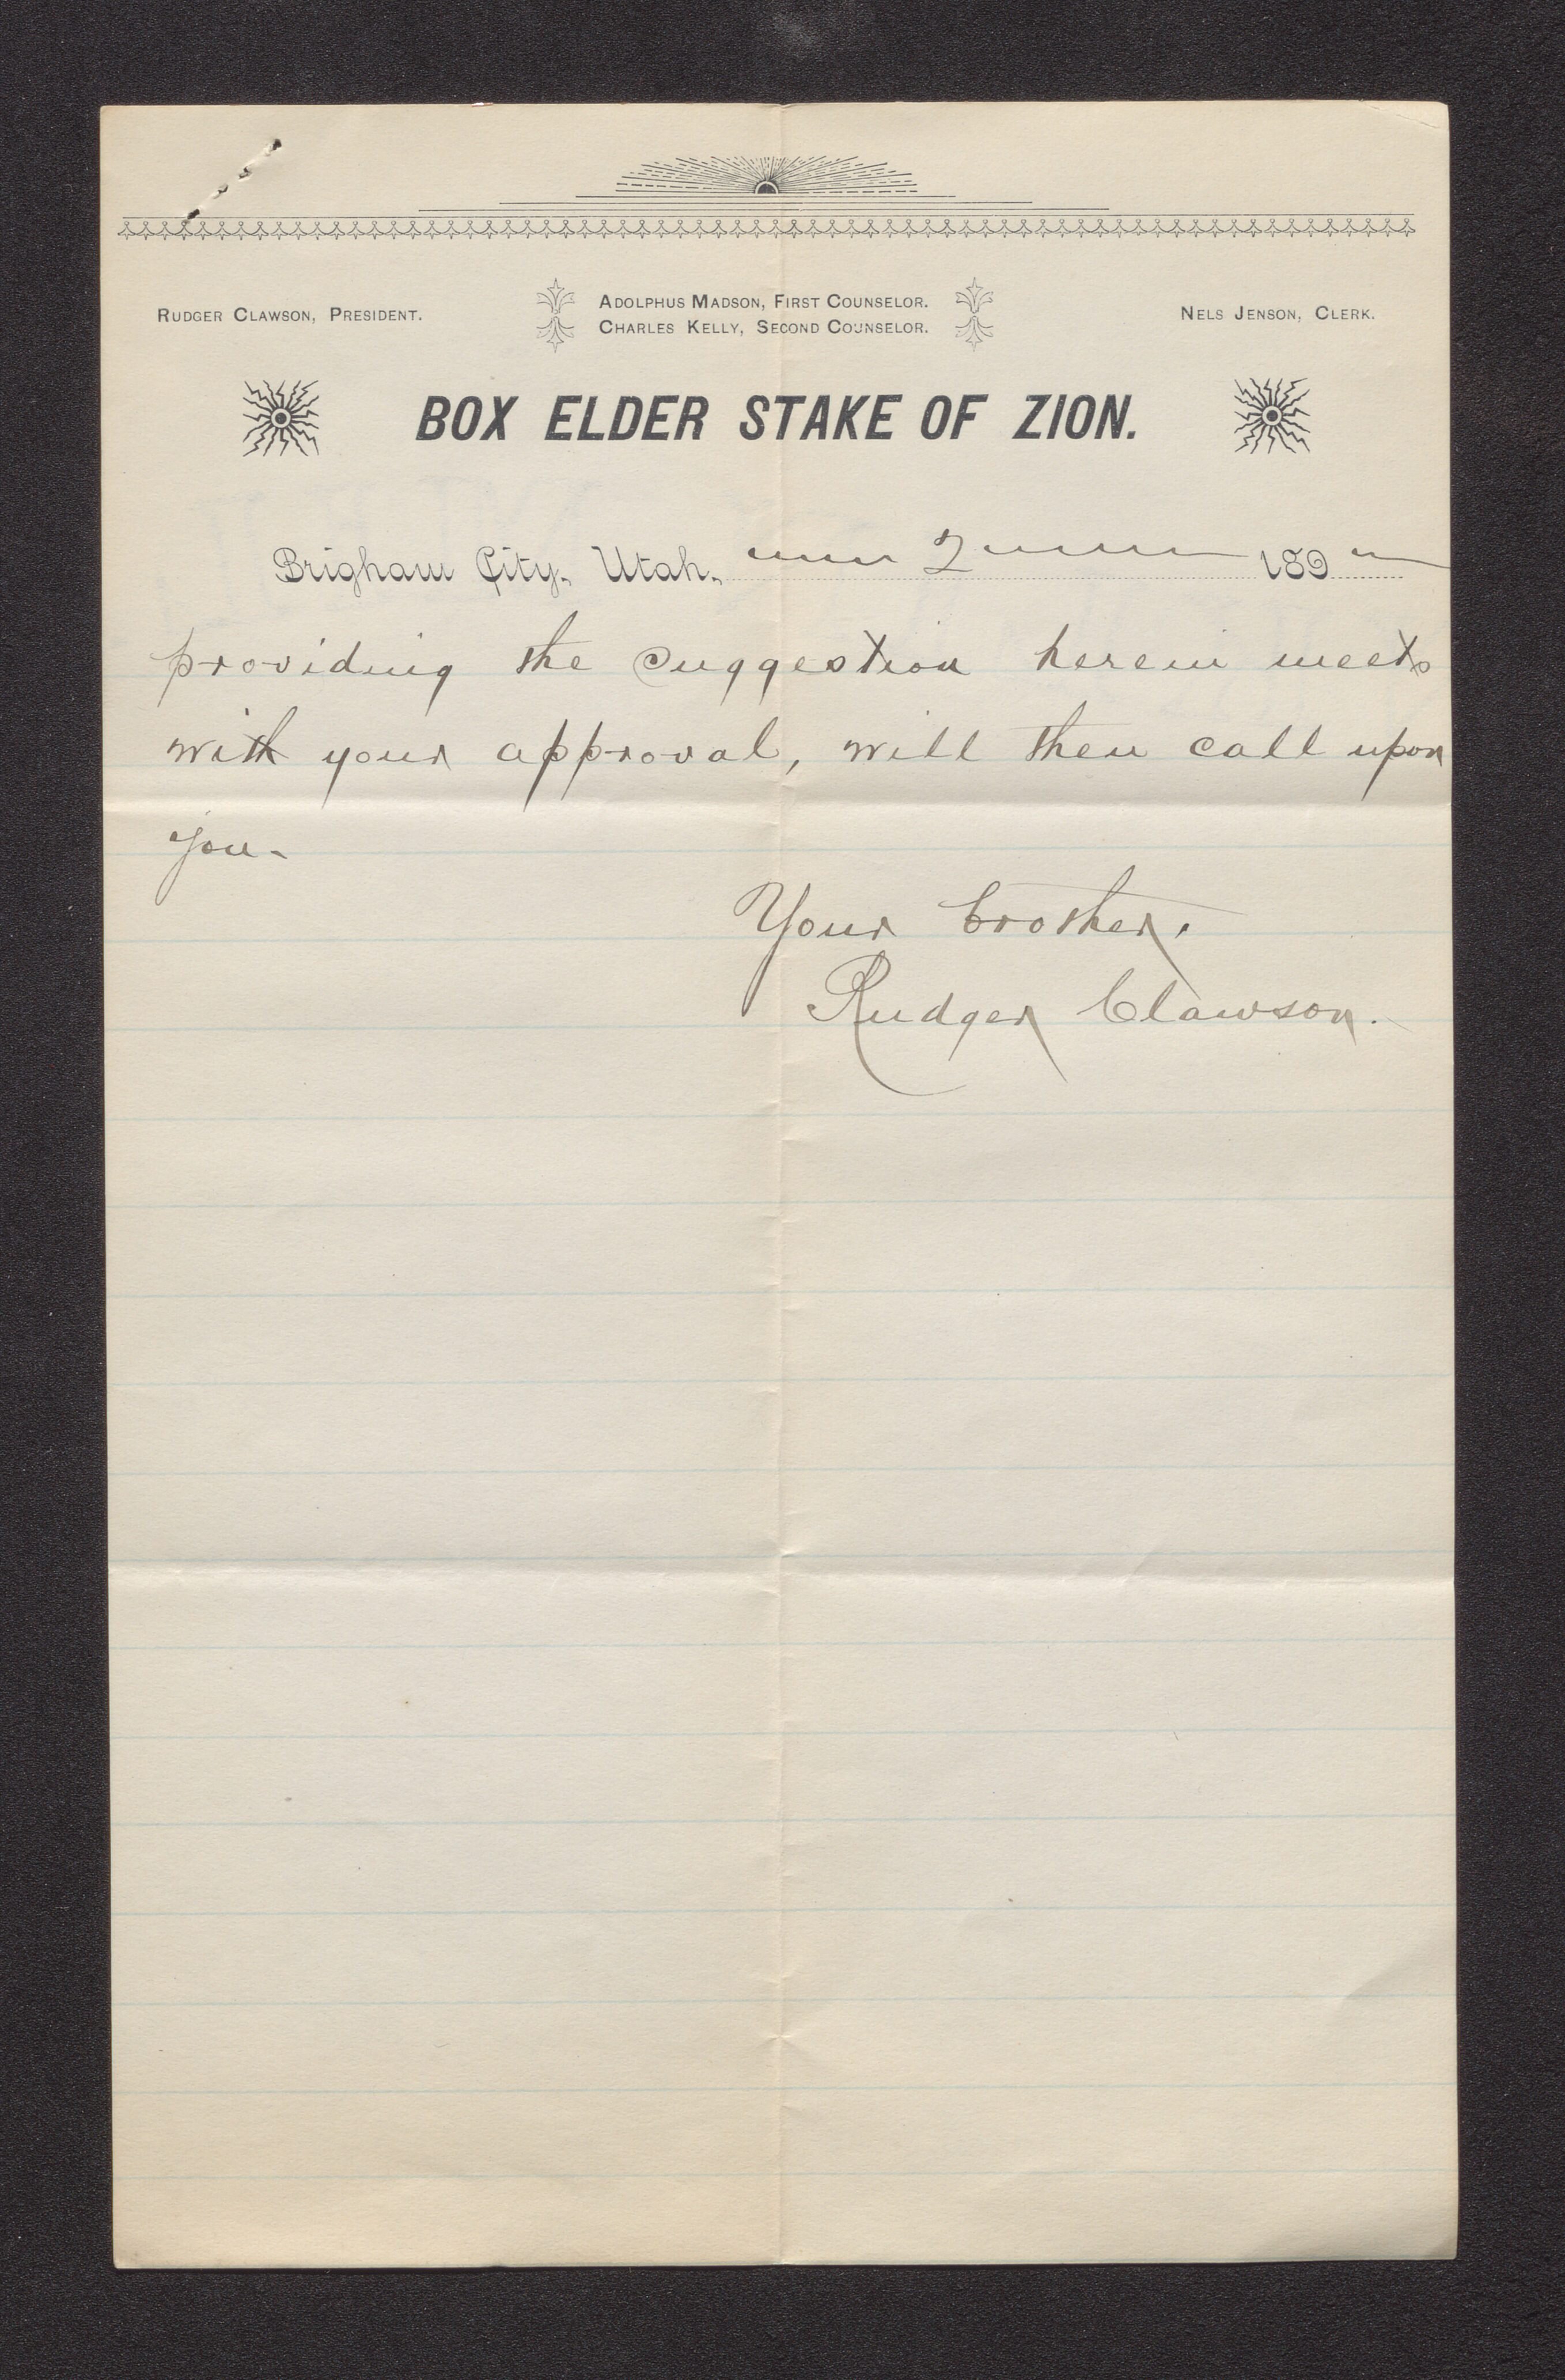 RUDGER CLAWSON, PRESIDENT.
ADOLPHUS MADSON, FIRST COUNSELOR.
CHARLES KELLY, SECOND COUNSELOR.
NELS JENSON, CLERK.
BOX ELDER STAKE OF ZION.
Brigham City, Utah, 2 189
providing the suggestion herein meets
with your approval, will then call upon
you.
Your brother,
Rudger Clawson.